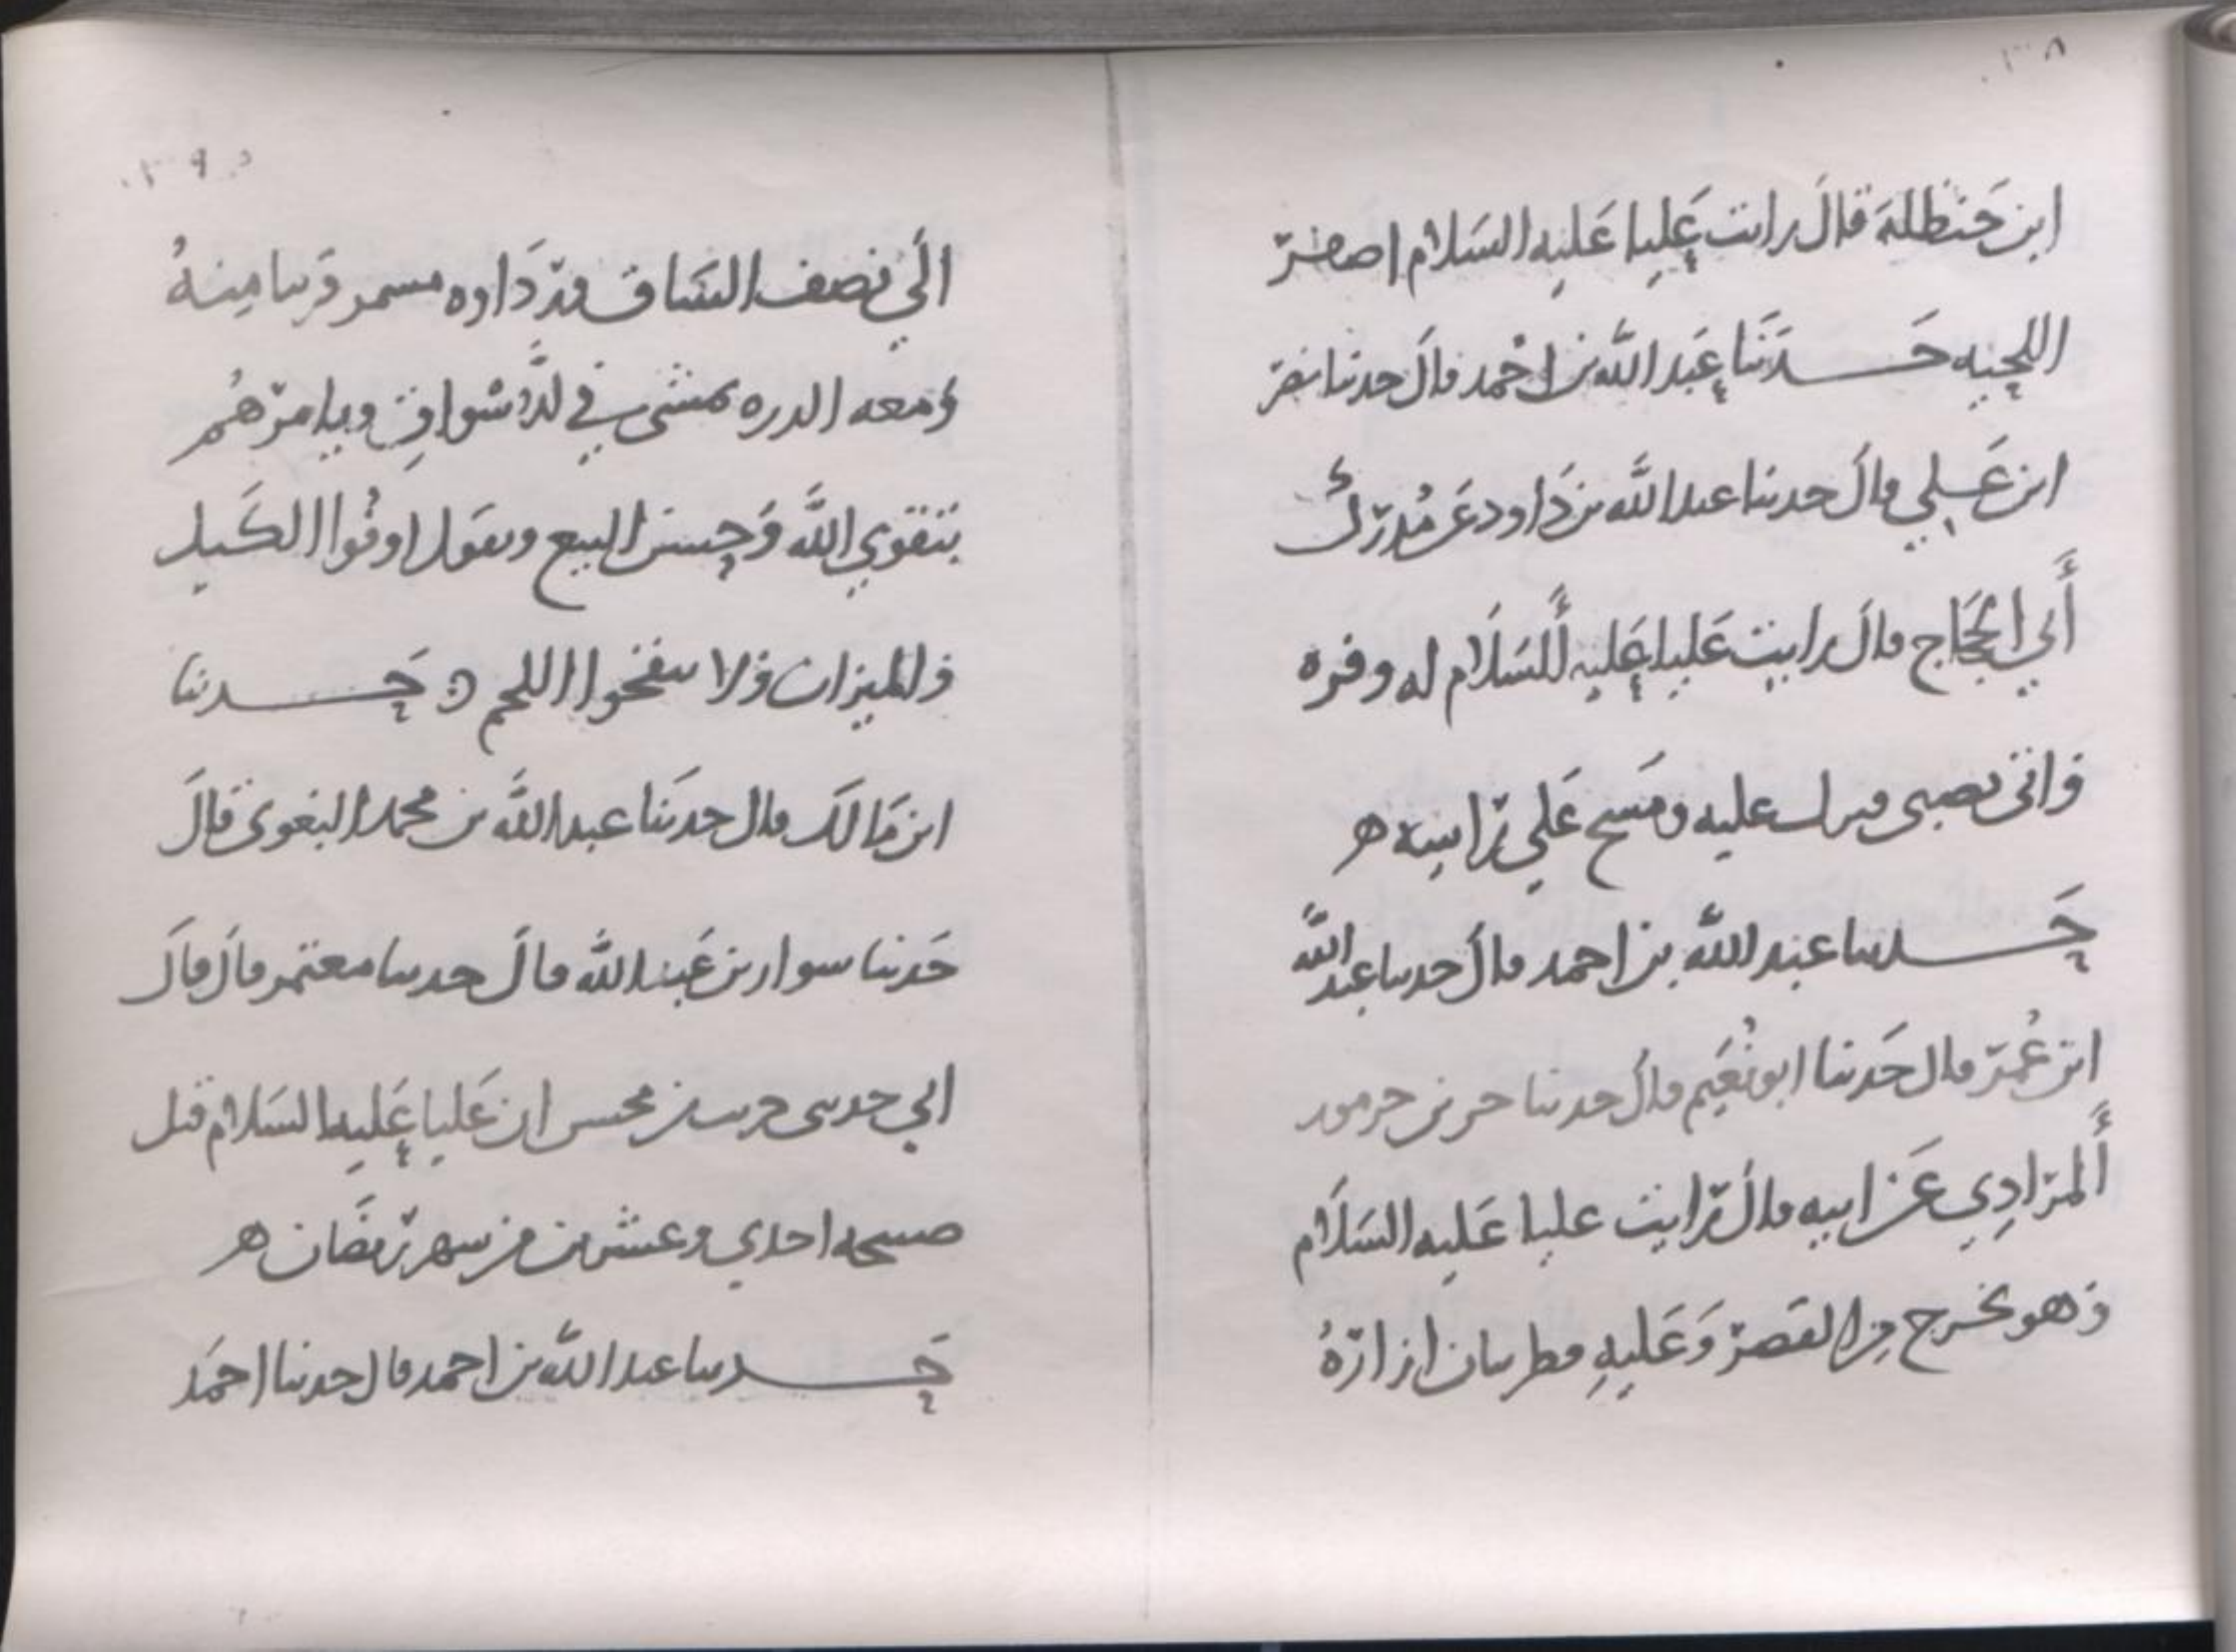 ابن حَنظلة قالَ رايت عَليا عَليه السَلام اصفر
اللحيه حَدثنا عَبد الله بن احْمد قالَ حدثنا نصر
ابن عَلي قالَ حدثنا عبد الله بن دَاود عَن مُدرك
أَبي الحجَاج قالَ رايت عَليا عَليه السَلَام له وفره
وَاتى بصبى فبرك عليه ومَسَح عَلي راسه ه
حَدثنا عبد الله بن احمد قالَ حدثنا عبد الله
ابن عُمر قال حَدثنا ابو نُعَيم قالَ حدثنا حر بن جرموز
أَلمرَادِي عَن ابيه قالَ رَايت عليا عَليه السَلَام
وَهو يخرج من القَصر وَعَليهِ قطريتان ازارهُ
الَي نصف السَاق وردَاوه مسمر قريبا مِنهُ
وَمعه الدره يمشى في الاسْواق ويامرهُم
بتقوي الله وَحسن البيع ويقول اوفُوا الكَيل
وَالميزان وَلا تنفخوا اللحم ه حَدثنا
ابن مَالك قال حدثنا عبد الله بن محمد البغوى قالَ
حَدثنا سوار بن عَبد الله قالَ حدثنا معتمر قالَ قالَ
ابي حدثنى حريث بن مخش ان عَليا عَليه السَلام قتل
صبيحه احدي وعشرين من شهر رمضَان ه
حَدثنا عبد الله بن احمد قال حدثنا احمَد